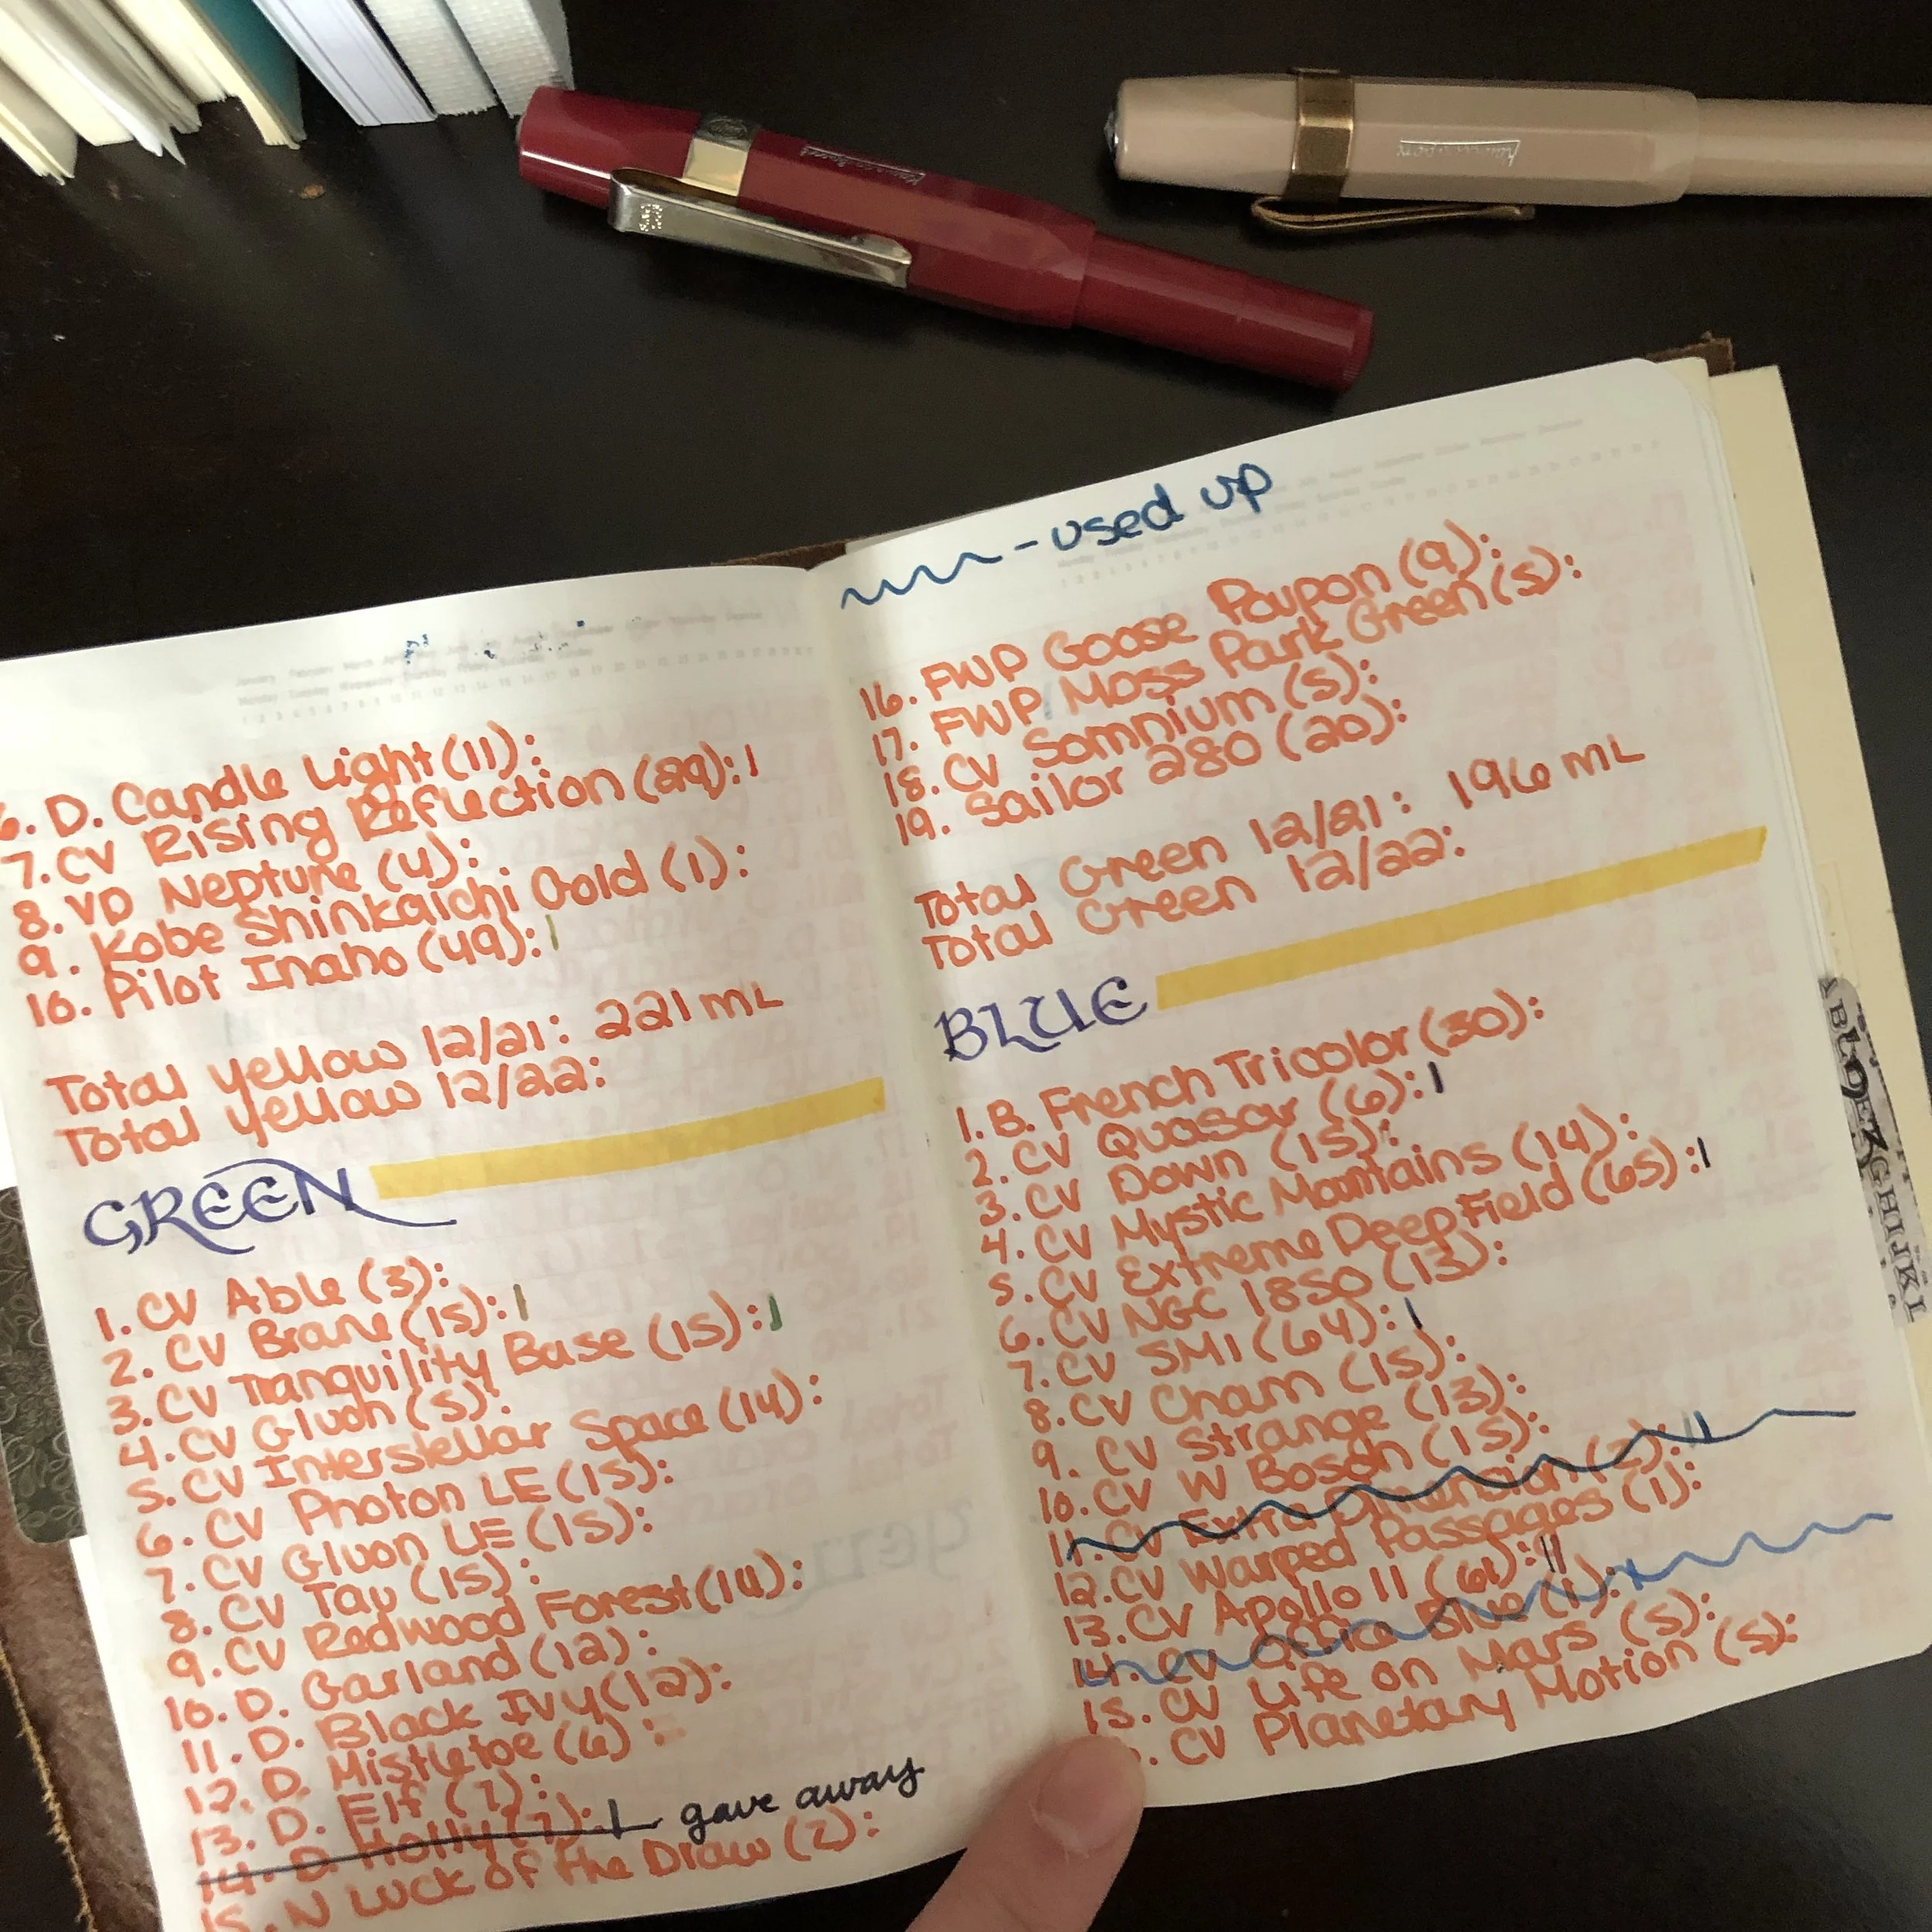 6. D. Candle Light (11):
7. CV Rising Reflection (29): |
8. VD Neptune (4):
9. Kobe Shinkaichi Gold (1):
10. Pilot Inaho (49): |
Total Yellow 12/21: 221 mL
Total Yellow 12/22:
GREEN
1. CV Able (3):
2. CV Brane (15): |
3. CV Tranquility Base (15): |
4. CV Gluon (5):
5. CV Interstellar Space (14):
6. CV Photon LE (15):
7. CV Gluon LE (15):
8. CV Tau (15):
9. CV Redwood Forest (14):
10. D. Garland (12):
11. D. Black Ivy (12):
12. D. Mistletoe (6):
13. D. Elf (7):
14. D. Holly (7): | gave away
15. N Luck of the Draw (2):
- used up
16. FWP Goose Poupon (9):
17. FWP Moss Park Green (5):
18. CV Somnium (5):
19. Sailor 280 (20):
Total Green 12/21: 196 mL
Total Green 12/22:
BLUE
1. B. French Tricolor (30):
2. CV Quasar (6): |
3. CV Down (15):
4. CV Mystic Mountains (14):
5. CV Extreme Deep Field (65): |
6. CV NGC 1850 (13):
7. CV SM1 (64): |
8. CV Charm (15):
9. CV Strange (13):
10. CV W Boson (15):
11. CV Extra Dimension (2): ||
12. CV Warped Passages (1):
13. CV Apollo 11 (61): ||
14. CV Blue (1):
15. CV Life on Mars (5):
CV Planetary Motion (5):